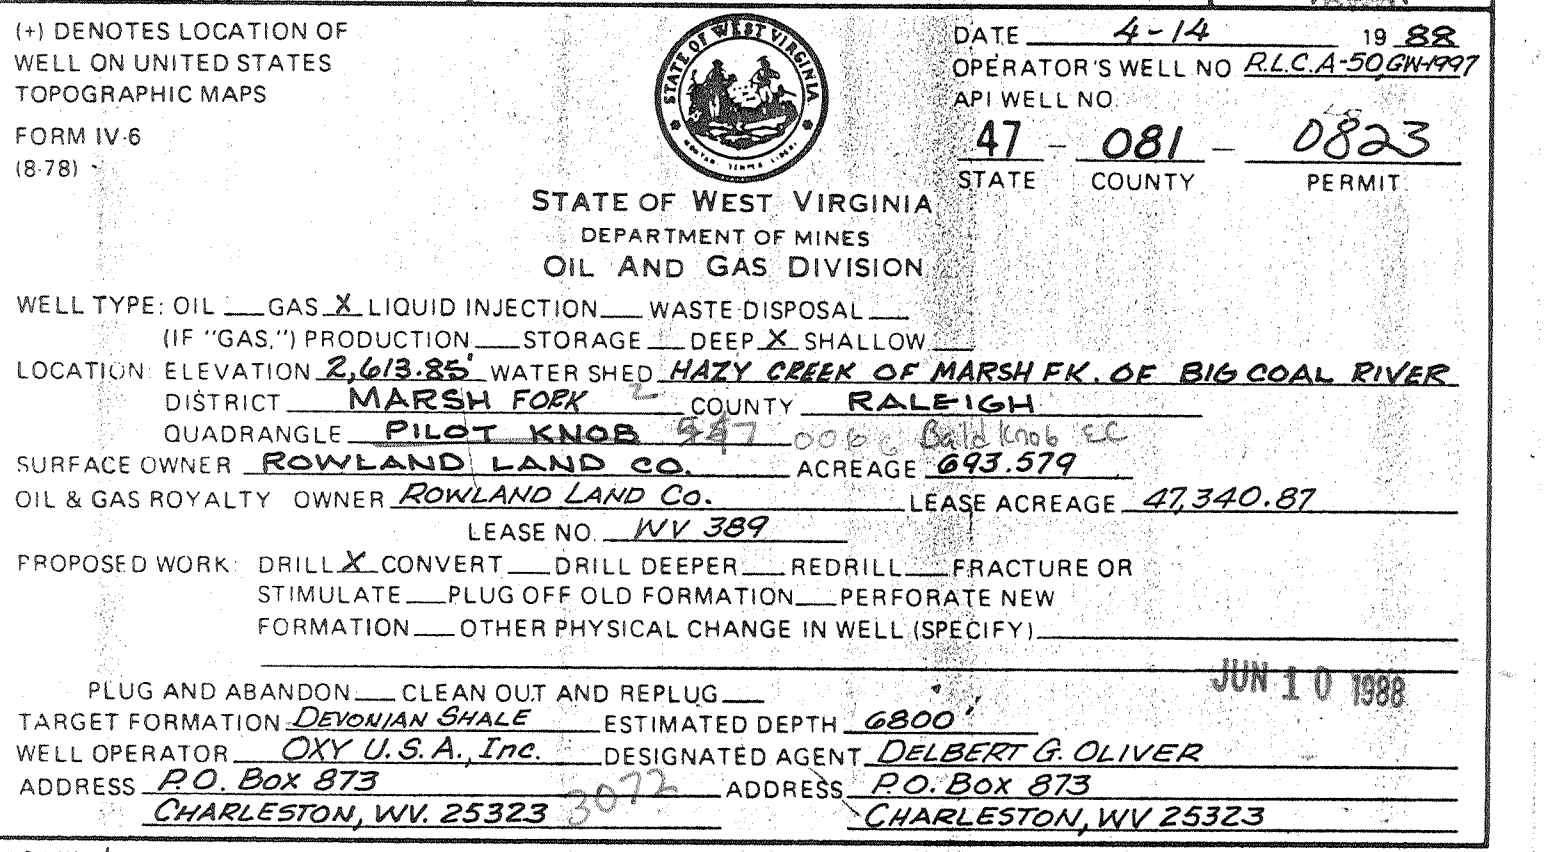 (+) DENOTES LOCATION OF
WELL ON UNITED STATES
TOPOGRAPHIC MAPS
FORM IV-6
(8-78)
STATE OF WEST VIRGINIA
DATE 4-14 19 88
OPERATOR'S WELL NO R.L.C.A-50, GW-1997
API WELL NO.
47 - 081 - 0823
STATE COUNTY PERMIT
STATE OF WEST VIRGINIA
DEPARTMENT OF MINES
OIL AND GAS DIVISION
WELL TYPE: OIL ___ GAS X LIQUID INJECTION ___ WASTE DISPOSAL ___
(IF "GAS,") PRODUCTION ___ STORAGE ___ DEEP X SHALLOW ___
LOCATION: ELEVATION 2,613.85' WATER SHED HAZY CREEK OF MARSH FK. OF BIG COAL RIVER
DISTRICT MARSH FORK 2 COUNTY RALEIGH
QUADRANGLE PILOT KNOB Bald Knob EC
SURFACE OWNER ROWLAND LAND CO. ACREAGE 693.579
OIL & GAS ROYALTY OWNER ROWLAND LAND CO. LEASE ACREAGE 47,340.87
LEASE NO. WV 389
PROPOSED WORK: DRILL X CONVERT ___ DRILL DEEPER ___ REDRILL ___ FRACTURE OR
STIMULATE ___ PLUG OFF OLD FORMATION ___ PERFORATE NEW
FORMATION ___ OTHER PHYSICAL CHANGE IN WELL (SPECIFY) ___
JUN 10 1988
PLUG AND ABANDON ___ CLEAN OUT AND REPLUG ___
TARGET FORMATION DEVONIAN SHALE ESTIMATED DEPTH 6800'
WELL OPERATOR OXY U.S.A., Inc. DESIGNATED AGENT DELBERT G. OLIVER
ADDRESS P.O. Box 873 ADDRESS P.O. Box 873
CHARLESTON, WV. 25323 3072 CHARLESTON, WV 25323